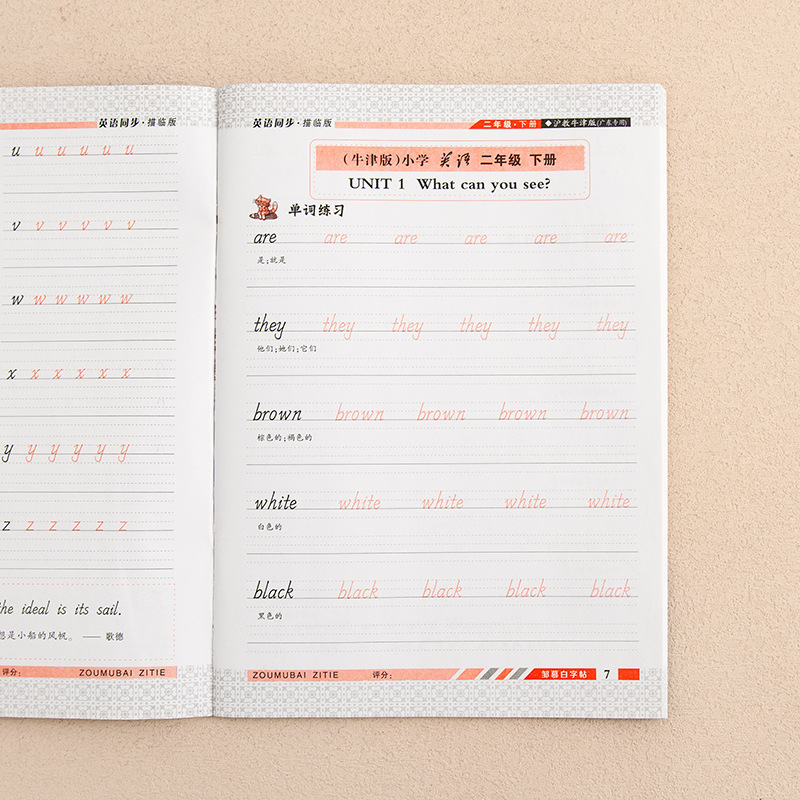 英语同步·描临版
u u u u u u
v v v v v v
w w w w w w
x x x x x x
y y y y y y
z z z z z z
the ideal is its sail.
想是小船的风帆。 —— 歌德
评分：
ZOUMUBAI ZITIE
英语同步·描临版
二年级·下册 ◆沪教牛津版(广东专用)
(牛津版)小学 英语 二年级 下册
UNIT 1 What can you see?
单词练习
are are are are are are
是;就是
they they they they they they
他们;她们;它们
brown brown brown brown brown
棕色的;褐色的
white white white white white
白色的
black black black black black
黑色的
ZOUMUBAI ZITIE 评分： 邹慕白字帖 7